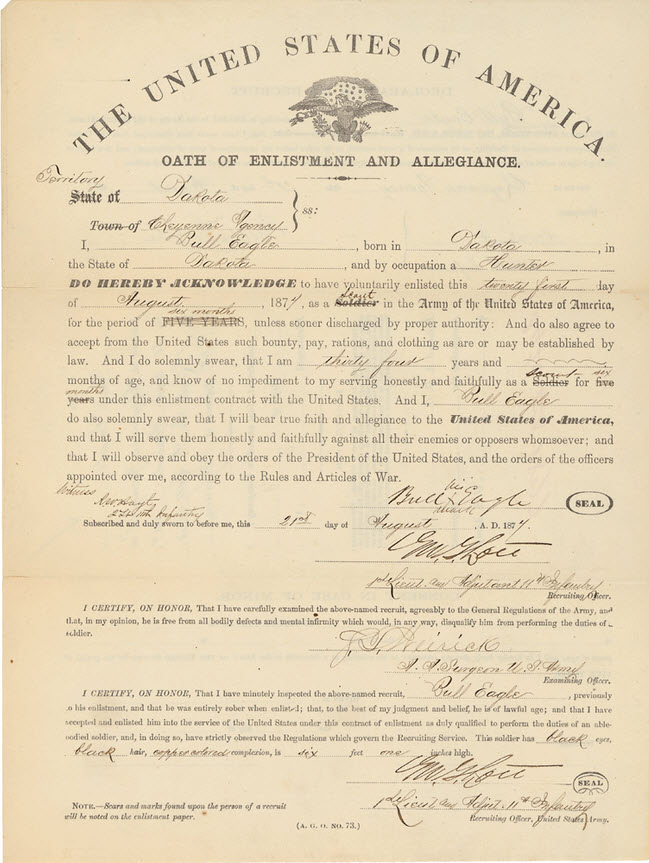 THE UNITED STATES OF AMERICA.
OATH OF ENLISTMENT AND ALLEGIANCE.
Territory
State of Dakota
Town of Cheyenne Agency } ss:
I, Bull Eagle, born in Dakota, in
the State of Dakota, and by occupation a Hunter
DO HEREBY ACKNOWLEDGE to have voluntarily enlisted this twenty first day
of August, 1877, as a Soldier Scout in the Army of the United States of America,
six months
for the period of FIVE YEARS, unless sooner discharged by proper authority: And do also agree to
accept from the United States such bounty, pay, rations, and clothing as are or may be established by
law. And I do solemnly swear, that I am thirty four years and
months of age, and know of no impediment to my serving honestly and faithfully as a Soldier Scout for five six
years months under this enlistment contract with the United States. And I, Bull Eagle
do also solemnly swear, that I will bear true faith and allegiance to the United States of America,
and that I will serve them honestly and faithfully against all their enemies or opposers whomsoever; and
that I will observe and obey the orders of the President of the United States, and the orders of the officers
appointed over me, according to the Rules and Articles of War.
Witness
Bull his x mark Eagle SEAL
Subscribed and duly sworn to before me, this 21st day of August, A. D. 1877.
1st Lieut and Adjutant 11th Infantry
Recruiting Officer.
I CERTIFY, ON HONOR, That I have carefully examined the above-named recruit, agreeably to the General Regulations of the Army, and
that, in my opinion, he is free from all bodily defects and mental infirmity which would, in any way, disqualify him from performing the duties of a
soldier.
A. A. Surgeon U. S. Army
Examining Officer.
I CERTIFY, ON HONOR, That I have minutely inspected the above-named recruit, Bull Eagle, previously
to his enlistment, and that he was entirely sober when enlisted; that, to the best of my judgment and belief, he is of lawful age; and that I have
accepted and enlisted him into the service of the United States under this contract of enlistment as duly qualified to perform the duties of an able-
bodied soldier, and, in doing so, have strictly observed the Regulations which govern the Recruiting Service. This soldier has black eyes,
black hair, copper colored complexion, is six feet one inches high.
SEAL
1st Lieut and Adjut. 11th Infantry
Recruiting Officer, United States Army.
NOTE.—Scars and marks found upon the person of a recruit
will be noted on the enlistment paper.
(A. G. O. NO. 73.)